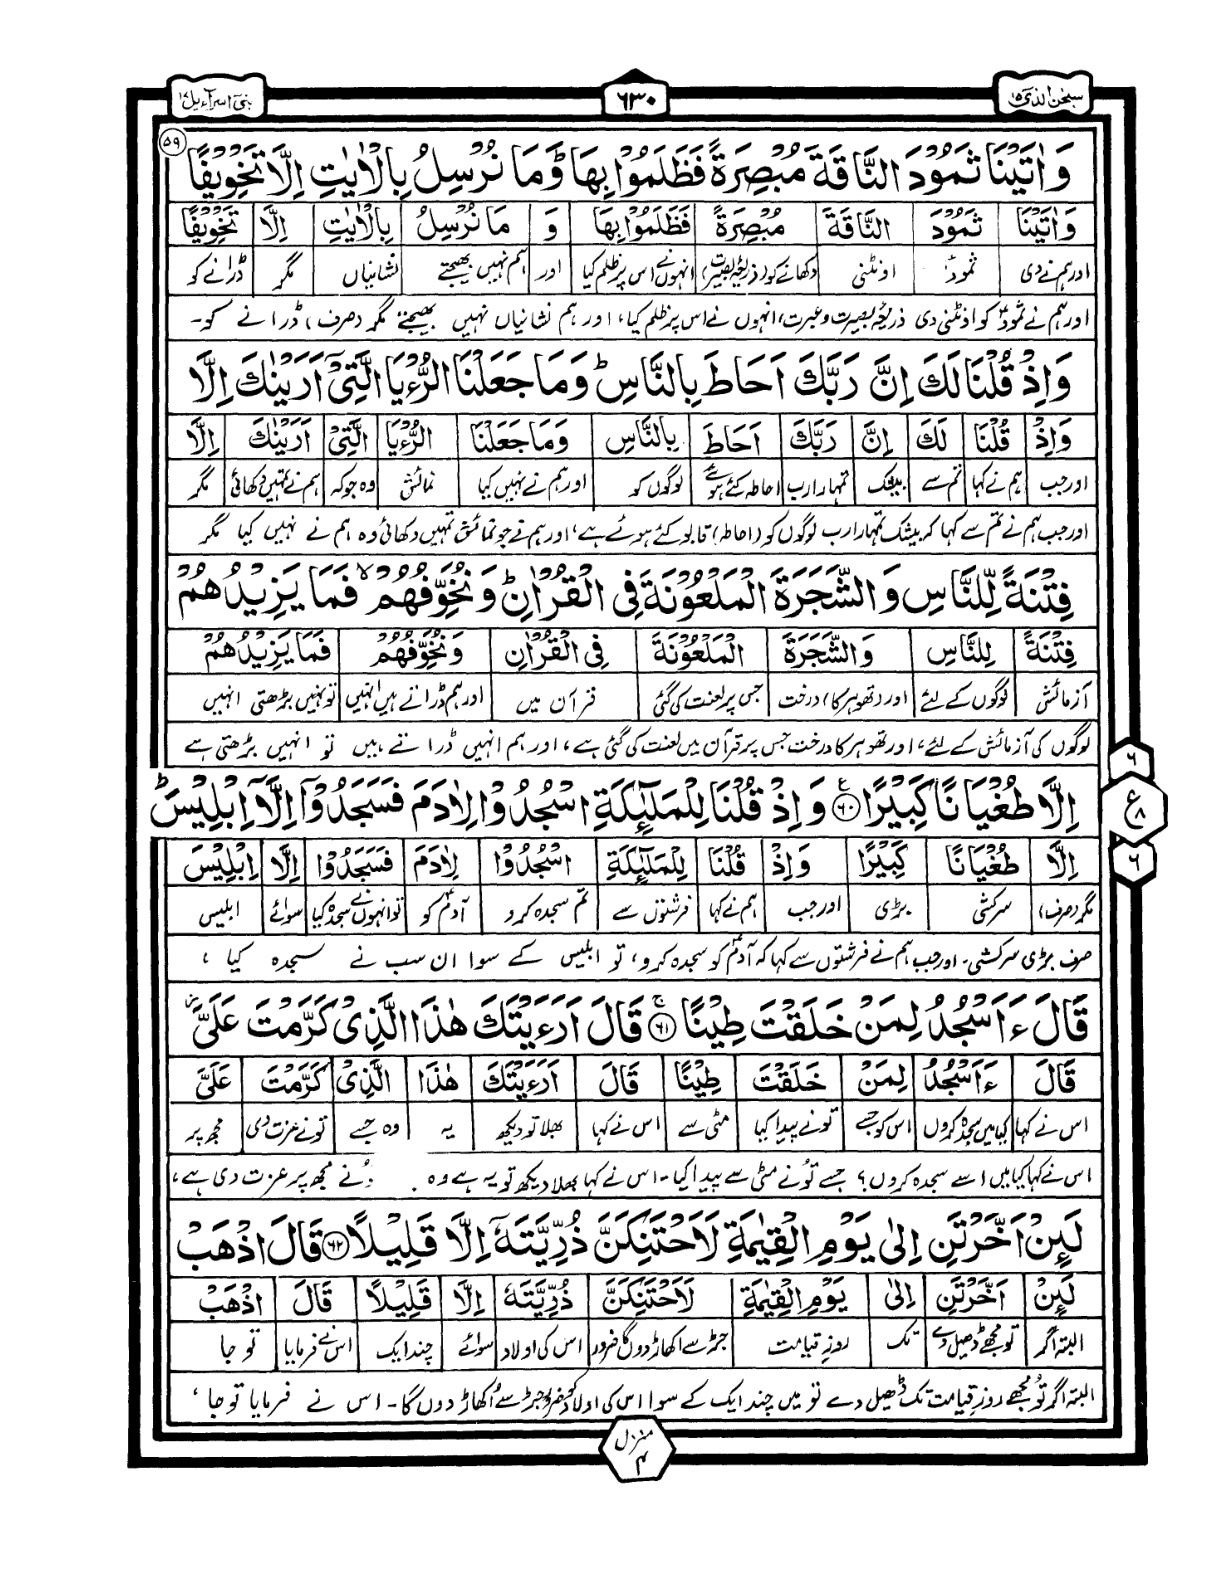 سبحٰن الذی ۱۵
۶۳۰
بنیٓ اسرآءیل ۱۷
وَاٰتَيْنَا ثَمُوْدَ النَّاقَةَ مُبْصِرَةً فَظَلَمُوْا بِهَا ؕ وَمَا نُرْسِلُ بِالْاٰيٰتِ اِلَّا تَخْوِيْفًا ۵۹
وَاٰتَيْنَا ثَمُوْدَ النَّاقَةَ مُبْصِرَةً فَظَلَمُوْا بِهَا وَ مَا نُرْسِلُ بِالْاٰيٰتِ اِلَّا تَخْوِيْفًا
اور ہم نے دی ثمودؔ اونٹنی دکھانے کو (ذریعۂ بصیرت) انہوں نے اس پر ظلم کیا اور ہم نہیں بھیجتے نشانیاں مگر ڈرانے کو
اور ہم نے ثمودؔ کو اونٹنی دی ذریعۂ بصیرت وعبرت، انہوں نے اس پر ظلم کیا، اور ہم نشانیاں نہیں بھیجتے مگر (صرف) ڈرانے کو۔
وَاِذْ قُلْنَا لَكَ اِنَّ رَبَّكَ اَحَاطَ بِالنَّاسِ ؕ وَمَا جَعَلْنَا الرُّءْيَا الَّتِىْٓ اَرَيْنٰكَ اِلَّا
وَاِذْ قُلْنَا لَكَ اِنَّ رَبَّكَ اَحَاطَ بِالنَّاسِ وَمَا جَعَلْنَا الرُّءْيَا الَّتِىْٓ اَرَيْنٰكَ اِلَّا
اور جب ہم نے کہا تم سے بیشک تمہارا رب احاطہ کئے ہوئے لوگوں کو اور ہم نے نہیں کیا نمائش وہ جو کہ ہم نے تمہیں دکھائی مگر
اور جب ہم نے تم سے کہا کہ بیشک تمہارا رب لوگوں کو (احاطہ) قابو کئے ہوئے ہے، اور ہم نے جو نمائش تمہیں دکھائی وہ ہم نے نہیں کیا مگر
فِتْنَةً لِّلنَّاسِ وَالشَّجَرَةَ الْمَلْعُوْنَةَ فِى الْقُرْاٰنِ ؕ وَنُخَوِّفُهُمْ ۙ فَمَا يَزِيْدُهُمْ
فِتْنَةً لِلنَّاسِ وَالشَّجَرَةَ الْمَلْعُوْنَةَ فِى الْقُرْاٰنِ وَنُخَوِّفُهُمْ فَمَا يَزِيْدُهُمْ
آزمائش لوگوں کے لئے اور (تھوہر کا) درخت جس پر لعنت کی گئی قرآن میں اور ہم ڈراتے ہیں انہیں تو نہیں بڑھتی انہیں
لوگوں کی آزمائش کے لئے، اور تھوہر کا درخت جس پر قرآن میں لعنت کی گئی ہے، اور ہم انہیں ڈراتے ہیں تو انہیں بڑھتی ہے
اِلَّا طُغْيَانًا كَبِيْرًا ۶۰ وَاِذْ قُلْنَا لِلْمَلٰٓئِكَةِ اسْجُدُوْا لِاٰدَمَ فَسَجَدُوْٓا اِلَّآ اِبْلِيْسَ ؕ
۶
ع ۸
۶
اِلَّا طُغْيَانًا كَبِيْرًا وَاِذْ قُلْنَا لِلْمَلٰٓئِكَةِ اسْجُدُوْا لِاٰدَمَ فَسَجَدُوْٓا اِلَّا اِبْلِيْسَ
مگر (صرف) سرکشی بڑی اور جب ہم نے کہا فرشتوں سے تم سجدہ کرو آدمؑ کو تو انہوں نے سجدہ کیا سوائے ابلیس
صرف بڑی سرکشی۔ اور جب ہم نے فرشتوں سے کہا کہ آدمؑ کو سجدہ کرو، تو ابلیس کے سوا ان سب نے سجدہ کیا ،
قَالَ ءَاَسْجُدُ لِمَنْ خَلَقْتَ طِيْنًا ۶۱ قَالَ اَرَءَيْتَكَ هٰذَا الَّذِىْ كَرَّمْتَ عَلَىَّ
قَالَ ءَاَسْجُدُ لِمَنْ خَلَقْتَ طِيْنًا قَالَ اَرَءَيْتَكَ هٰذَا الَّذِىْ كَرَّمْتَ عَلَىَّ
اس نے کہا کیا میں سجدہ کروں اس کو جسے تو نے پیدا کیا مٹی سے اس نے کہا بھلا تو دیکھ یہ وہ جسے تو نے عزت دی مجھ پر
اس نے کہا کیا میں اسے سجدہ کروں؟ جسے تُو نے مٹی سے پیدا کیا۔ اس نے کہا بھلا دیکھ تو یہ ہے وہ نے مجھ پر عزت دی ہے،
لَئِنْ اَخَّرْتَنِ اِلٰى يَوْمِ الْقِيٰمَةِ لَاَحْتَنِكَنَّ ذُرِّيَّتَهٗٓ اِلَّا قَلِيْلًا ۶۲ قَالَ اذْهَبْ
لَئِنْ اَخَّرْتَنِ اِلٰى يَوْمِ الْقِيٰمَةِ لَاَحْتَنِكَنَّ ذُرِّيَّتَهٗٓ اِلَّا قَلِيْلًا قَالَ اذْهَبْ
البتہ اگر تو مجھے ڈھیل دے تک روزِ قیامت جڑ سے اکھاڑ دوں گا ضرور اس کی اولاد سوائے چند ایک اس نے فرمایا تو جا
البتہ اگر تُو مجھے روزِ قیامت تک ڈھیل دے تو میں چند ایک کے سوا اس کی اولاد کو ضرور جڑ سے اُکھاڑ دوں گا۔ اس نے فرمایا تو جا ،
منزل ۴